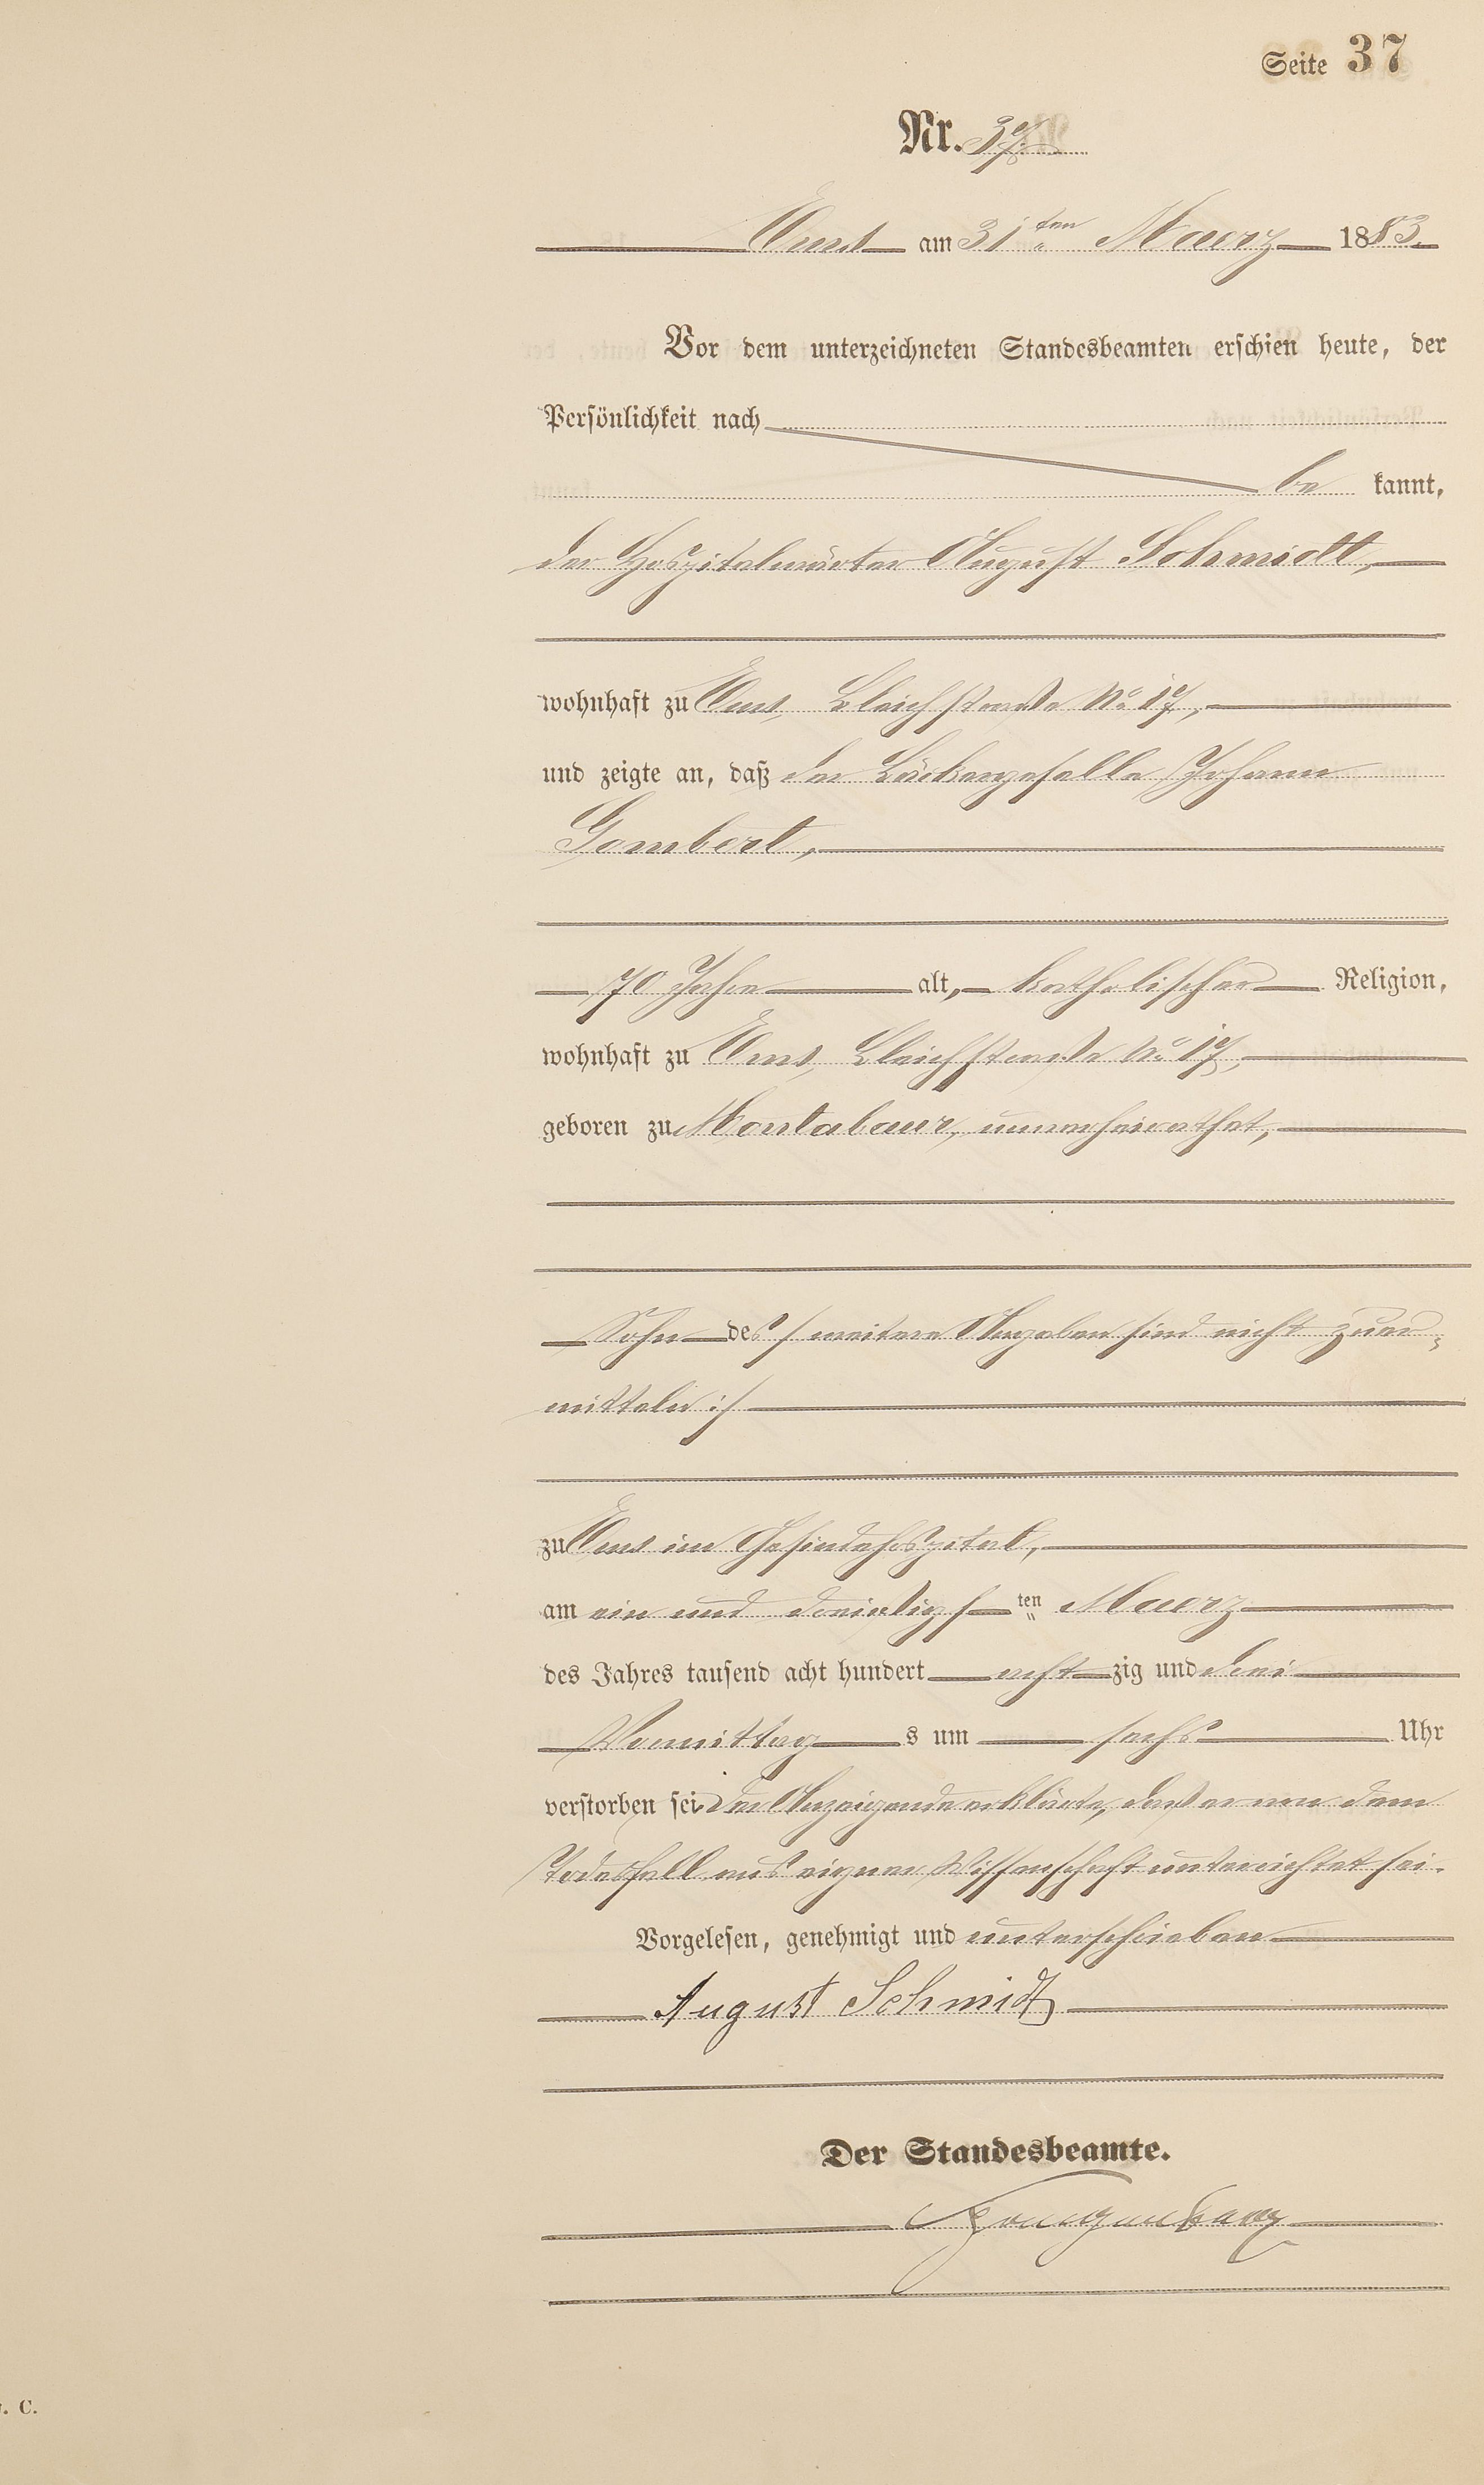 Seite 37
Nr. 37.
Ems am 31ten Maerz 1883.
Vor dem unterzeichneten Standesbeamten erschien heute, der
Persönlichkeit nach
be kannt,
der Hospitalwärter August Schmidt,
wohnhaft zu Ems, Bleichstraße No 17,
und zeigte an, daß der Bäckergeselle Johann
Gombert,
70 Jahre alt, katholischer Religion,
wohnhaft zu Ems, Bleichstraße No 17,
geboren zu Montabaur, unverheirathet,
Sohn des /: weitere Angaben sind nicht zu er=
mitteln :/
zu Ems im Gesindehospital,
am ein und dreißigs ten Maerz
des Jahres tausend acht hundert acht zig und drei
Vormittag s um sechs Uhr
verstorben sei. Der Anzeigende erklärte, daß er von dem
Todesfall aus eigner Wissenschaft unterrichtet sei.
Vorgelesen, genehmigt und unterschrieben
August Schmidt
Der Standesbeamte.
. C.